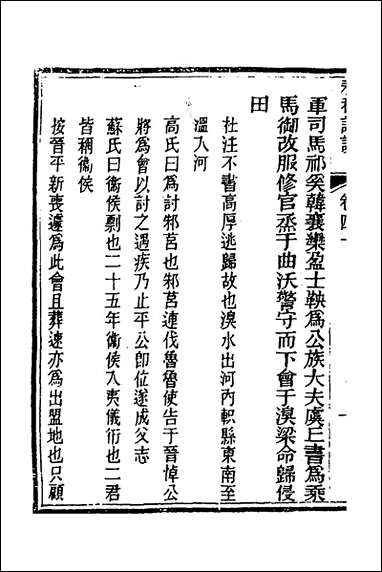 軍司馬祁奚韓襄欒盈士鞅為公族大夫虞丘書為乘
馬御改服修官烝于曲沃警守而下會于溴梁命歸侵
田
杜注不書高厚逃歸故也溴水出河內軹縣東南至
溫入河
高氏曰為討邾莒也邾莒連伐魯魯使告于晉悼公
將為會以討之遇疾乃止平公卽位遂成父志
蘇氏曰衞侯剽也二十五年衞侯入夷儀衎也二君
皆稱衞侯
按晉平新喪遽為此會且葬速亦為出盟地也只顧